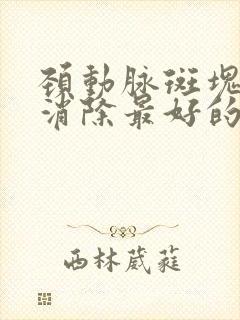 頸動脉斑塊
消除最好的
西林葳蕤